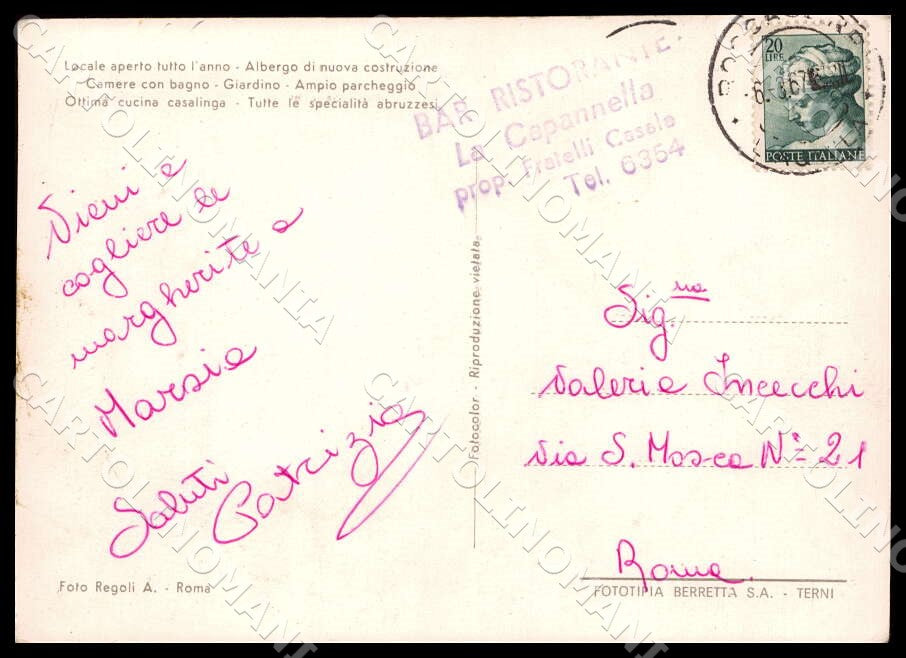 Locale aperto tutto l'anno - Albergo di nuova costruzione
Camere con bagno - Giardino - Ampio parcheggio
Ottima cucina casalinga - Tutte le specialità abruzzesi
BAR RISTORANTE
La Capannella
prop. Fratelli Casale
Tel. 6354
20
LIRE
POSTE ITALIANE
Vieni a
cogliere le
margherite a
Marsia
Saluti Patrizia
Fotocolor - Riproduzione vietata
Sig.na
Valeria Incecchi
Via S. Mosca N° 21
Roma
Foto Regoli A. - Roma
FOTOTIPIA BERRETTA S.A. - TERNI
CARTOLINOMANIA